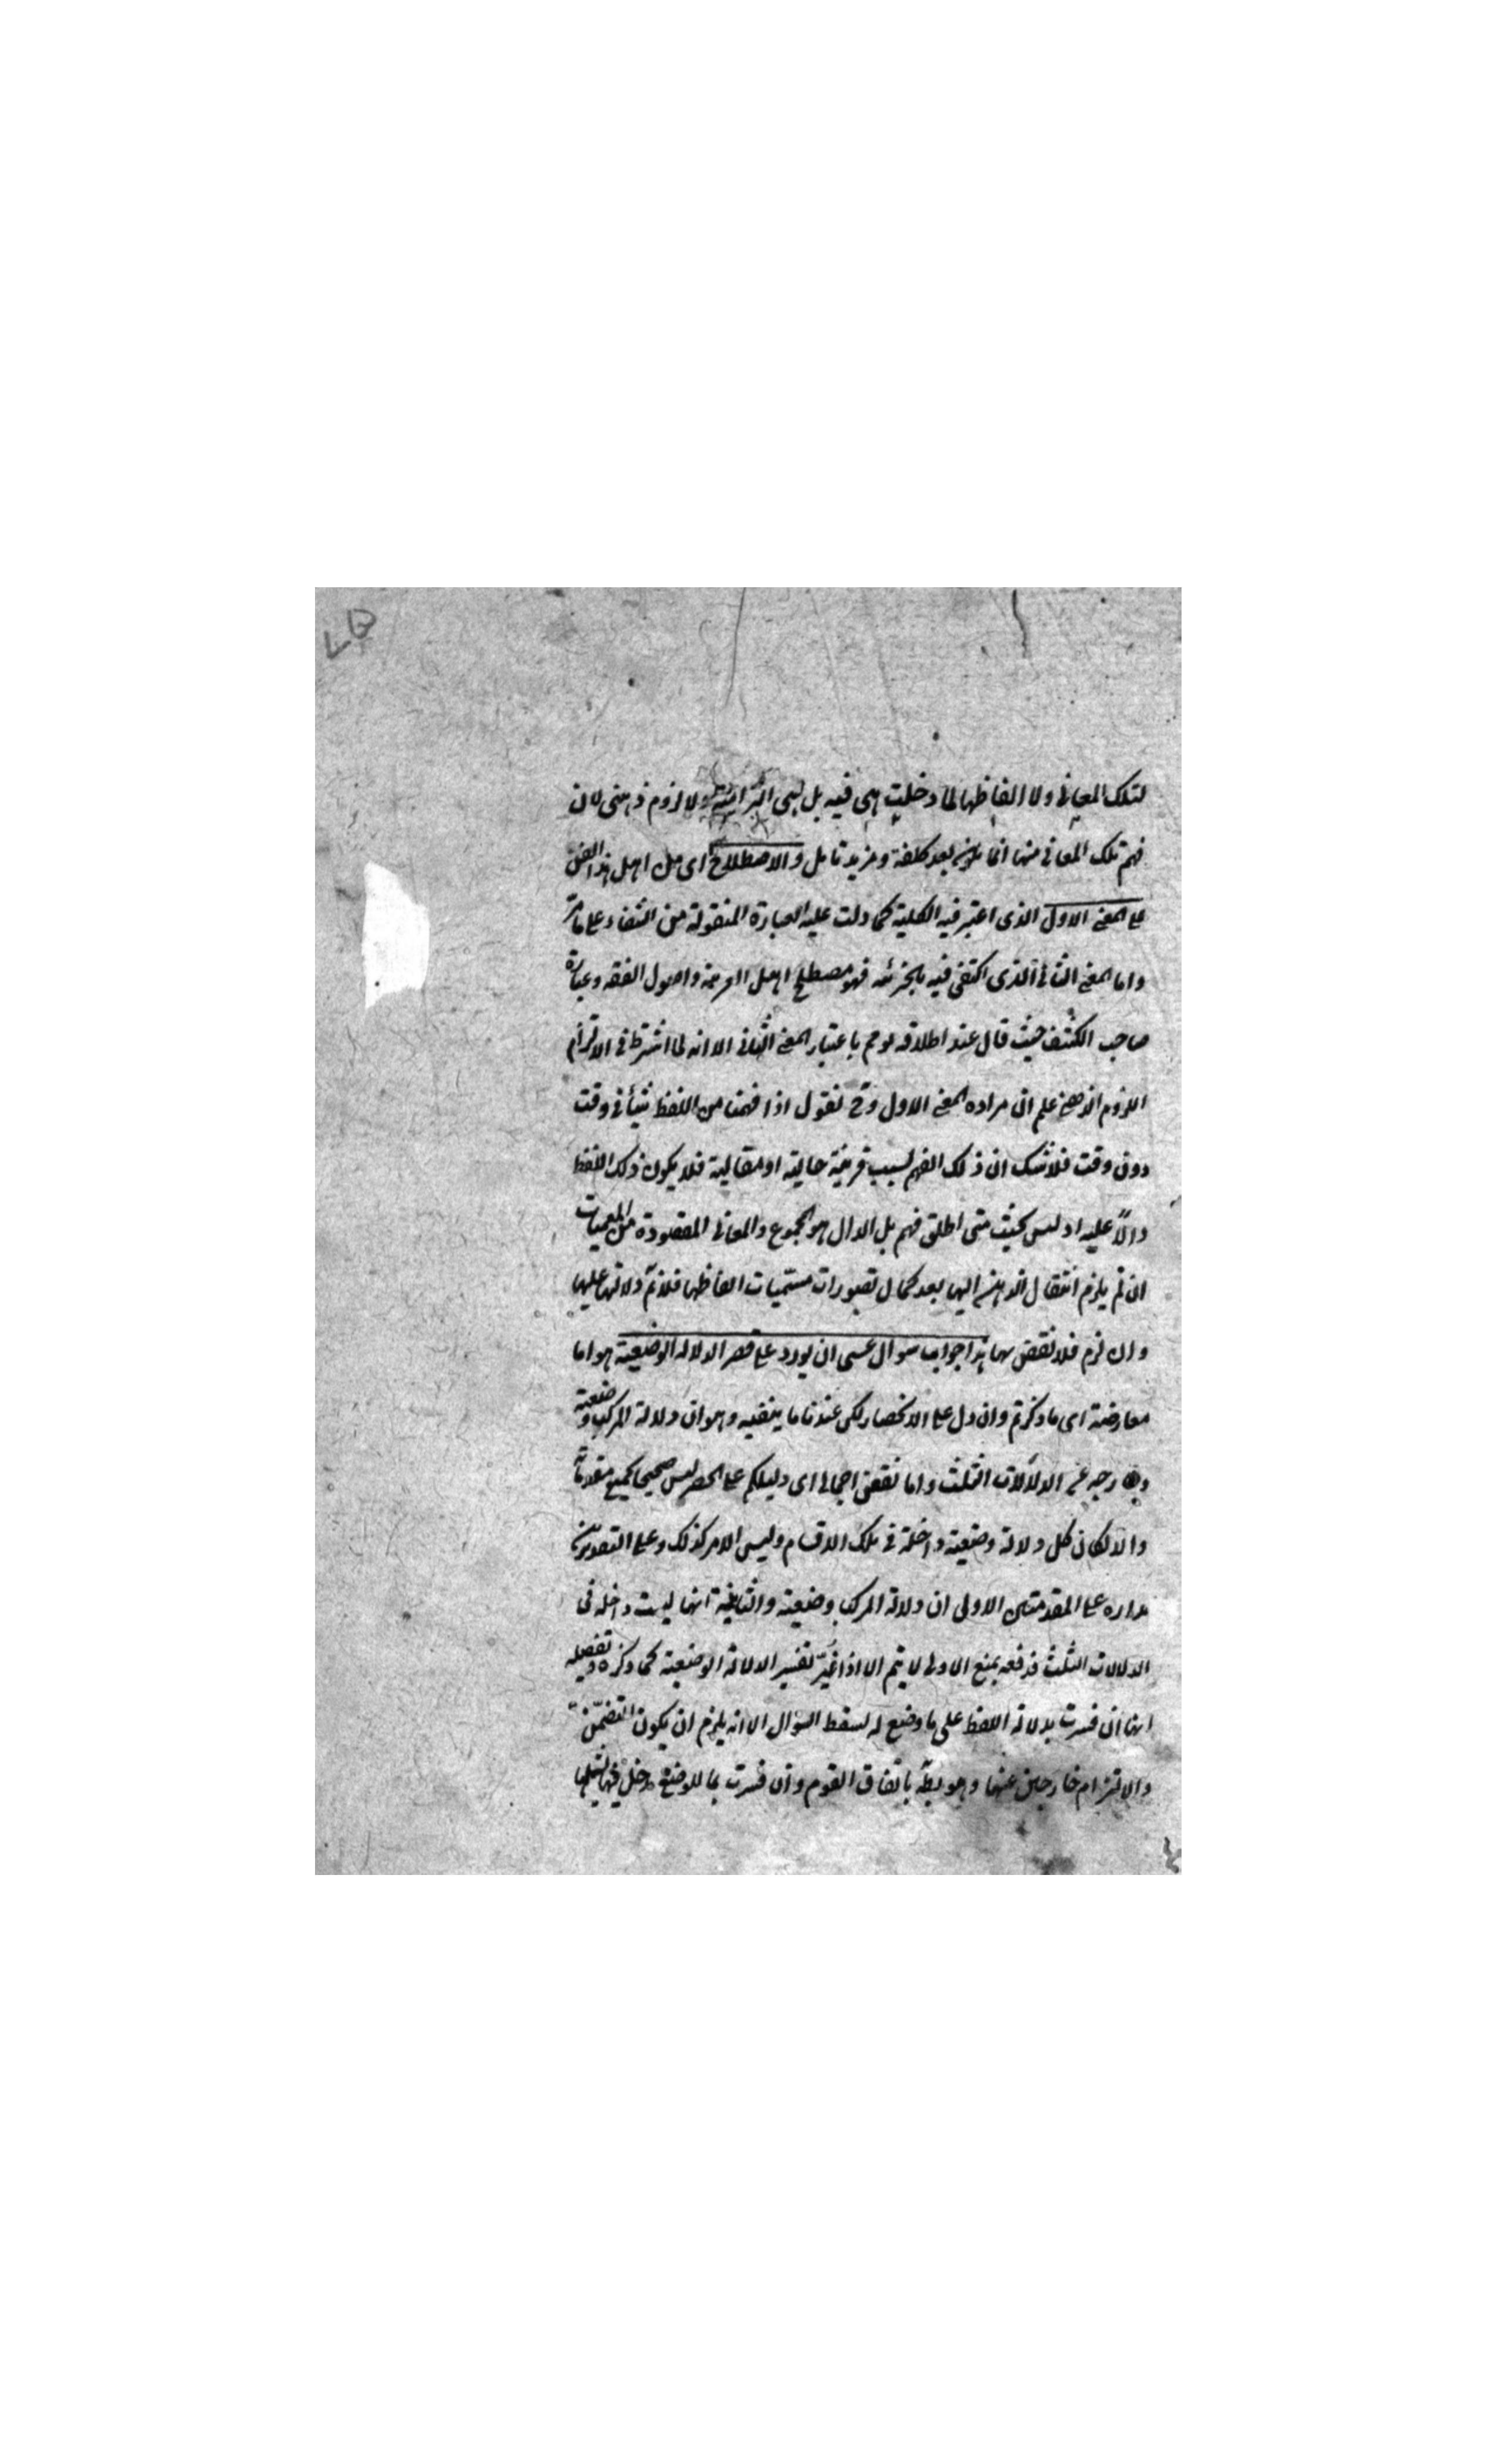 لتلك المعاني ولا الفاظها لما دخلت هي فيه بل هي التزامية ولا لزوم ذهني لان
فهم تلك المعاني منها انما يلزم بعد كلفة ومزيد تامل والاصطلاح اى من اهل هذا الفن
على المعنى الاول الذى اعتبر فيه الكلية كما دلت عليه العبارة المنقولة من الشفاء على ما مر
واما المعنى الثاني الذى اكتفى فيه بالجزئية فهو مصطلح اهل العربية واصول الفقه وعبارة
صاحب الكشف حيث قال عند اطلاقه توهم باعتبار المعنى الثاني الا انه لما اشترط في الالتزام
اللزوم الذهني علم ان مراده المعنى الاول وح نقول اذا فهمنا من اللفظ شيأ في وقت
دون وقت فلا شك ان ذلك الفهم بسبب قرينة حالية او مقالية فلا يكون ذلك اللفظ
دالاً عليه اذ ليس بحيث متى اطلق فهم بل الدال هو المجموع والمعاني المقصودة من المعميات
ان لم يلزم انتقال الذهن اليها بعد كمال تصورات مسميات الفاظها فلا تم دلالتها عليها
وان لزم فلا نقض بها هذا جواب سوال عسى ان يورد على قصر الدلالة الوضعية هو اما
معارضة اى ما ذكرتم وان دل على الانحصار لكن عندنا ما ينفيه وهو ان دلالة المركب وضعية
وخارجة عن الدلالات الثلث واما نقض اجمالى اى دليلكم على الحصر ليس صحيحا بجميع مقدماته
والا لكان كل دلالة وضعية داخلة في تلك الاقسام وليس الامر كذلك وعلى التقديرين
مداره على المقدمتين الاولى ان دلالة المركب وضعية والثانية انها ليست داخلة فى
الدلالات الثلث فدفعه بمنع الاولى لا يتم الا اذا غيّر تفسير الدلالة الوضعية كما ذكره وتفصيله
انها ان فسرت بدلالة اللفظ على ما وضع له لسقط السؤال الا انه يلزم ان يكون التضمن
والالتزام خارجين عنها وهو بط باتفاق القوم وان فسرت بما للوضع دخل فيها